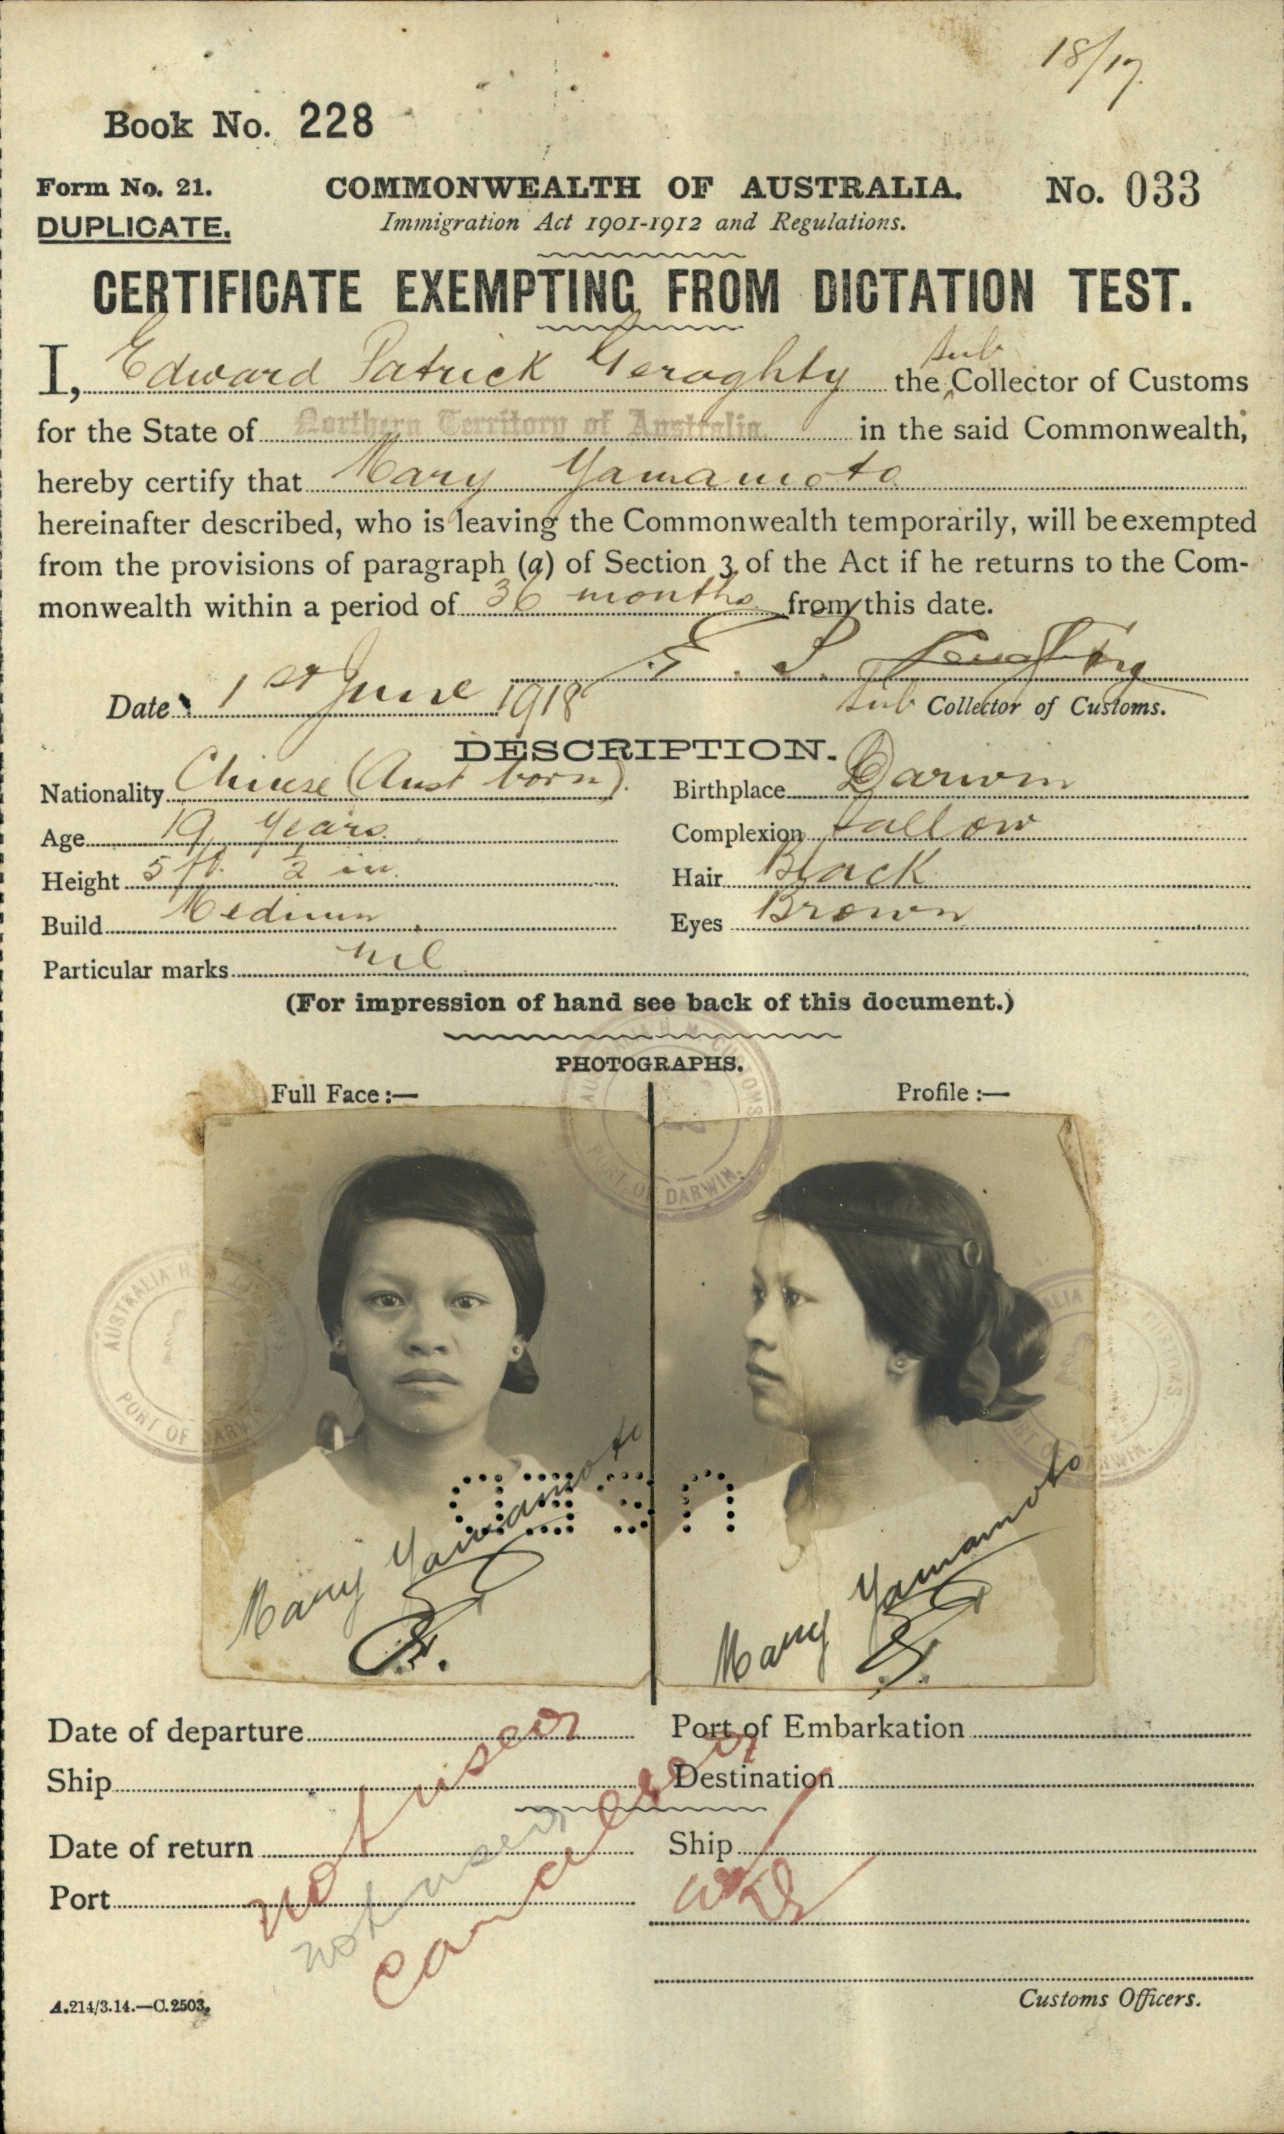 18/17.
Book No. 228
Form No. 21.
DUPLICATE.
COMMONWEALTH OF AUSTRALIA.
No. 033
Immigration Act 1901-1912 and Regulations.
CERTIFICATE EXEMPTING FROM DICTATION TEST.
I, Edward Patrick Geraghty the sub Collector of Customs
for the State of Northern Territory of Australia. in the said Commonwealth,
hereby certify that Mary Yamamoto
hereinafter described, who is leaving the Commonwealth temporarily, will be exempted
from the provisions of paragraph (a) of Section 3 of the Act if he returns to the Com-
monwealth within a period of 36 months from this date.
E. P. Geraghty
Date 1st June 1918
Sub Collector of Customs.
DESCRIPTION.
Nationality Chinese (Aust born).
Birthplace Darwin
Age 19 years
Complexion Sallow
Height 5 ft. ½ in.
Hair Black
Build Medium
Eyes Brown
Particular marks nil
(For impression of hand see back of this document.)
PHOTOGRAPHS.
Full Face :—
Profile :—
AUSTRALIA H. M. CUSTOMS.
PORT OF DARWIN.
AUSTRALIA H. M. CUSTOMS
PORT OF DARWIN
AUSTRALIA H. M. CUSTOMS
PORT OF DARWIN.
Mary Yamamoto
Mary Yamamoto
Date of departure
Port of Embarkation
Ship
Destination
Date of return
Ship
Port
not used
not used
cancelled
A.214/3.14.—C.2503.
Customs Officers.